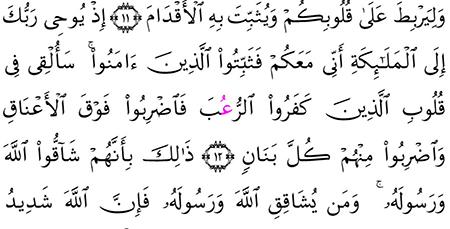 وَلِيَرْبِطَ عَلَىٰ قُلُوبِكُمْ وَيُثَبِّتَ بِهِ ٱلْأَقْدَامَ ۝١١ إِذْ يُوحِى رَبُّكَ
إِلَى ٱلْمَلَـٰٓئِكَةِ أَنِّى مَعَكُمْ فَثَبِّتُوا۟ ٱلَّذِينَ ءَامَنُوا۟ ۚ سَأُلْقِى فِى
قُلُوبِ ٱلَّذِينَ كَفَرُوا۟ ٱلرُّعْبَ فَٱضْرِبُوا۟ فَوْقَ ٱلْأَعْنَاقِ
وَٱضْرِبُوا۟ مِنْهُمْ كُلَّ بَنَانٍ ۝١٢ ذَٰلِكَ بِأَنَّهُمْ شَآقُّوا۟ ٱللَّهَ
وَرَسُولَهُۥ ۚ وَمَن يُشَاقِقِ ٱللَّهَ وَرَسُولَهُۥ فَإِنَّ ٱللَّهَ شَدِيدُ